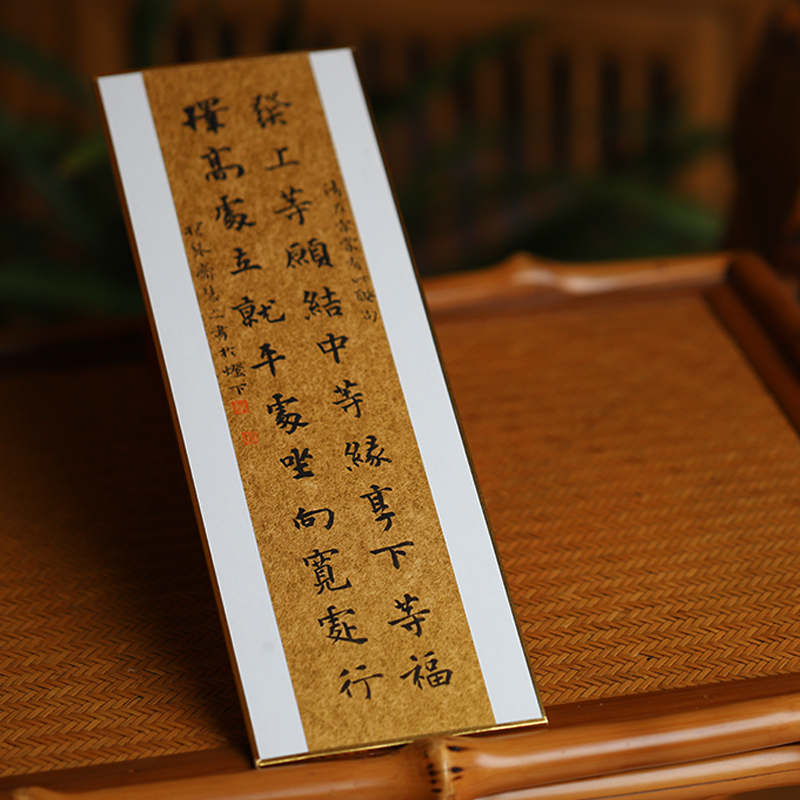 清左宗棠
發上等願結中等緣享下等福
擇高處立就平處坐向寬處行
書於燈下